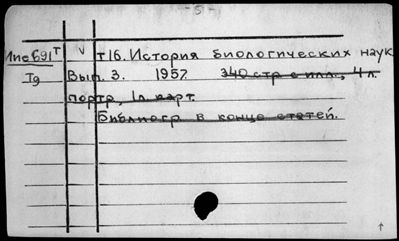 - 5 -
Ппс691 т v т16. История биологических наук
Ig Вып. 3. 1957. 340 стр с илл., 4 л.
портр, 1л карт.
Библиогр в конце статей.